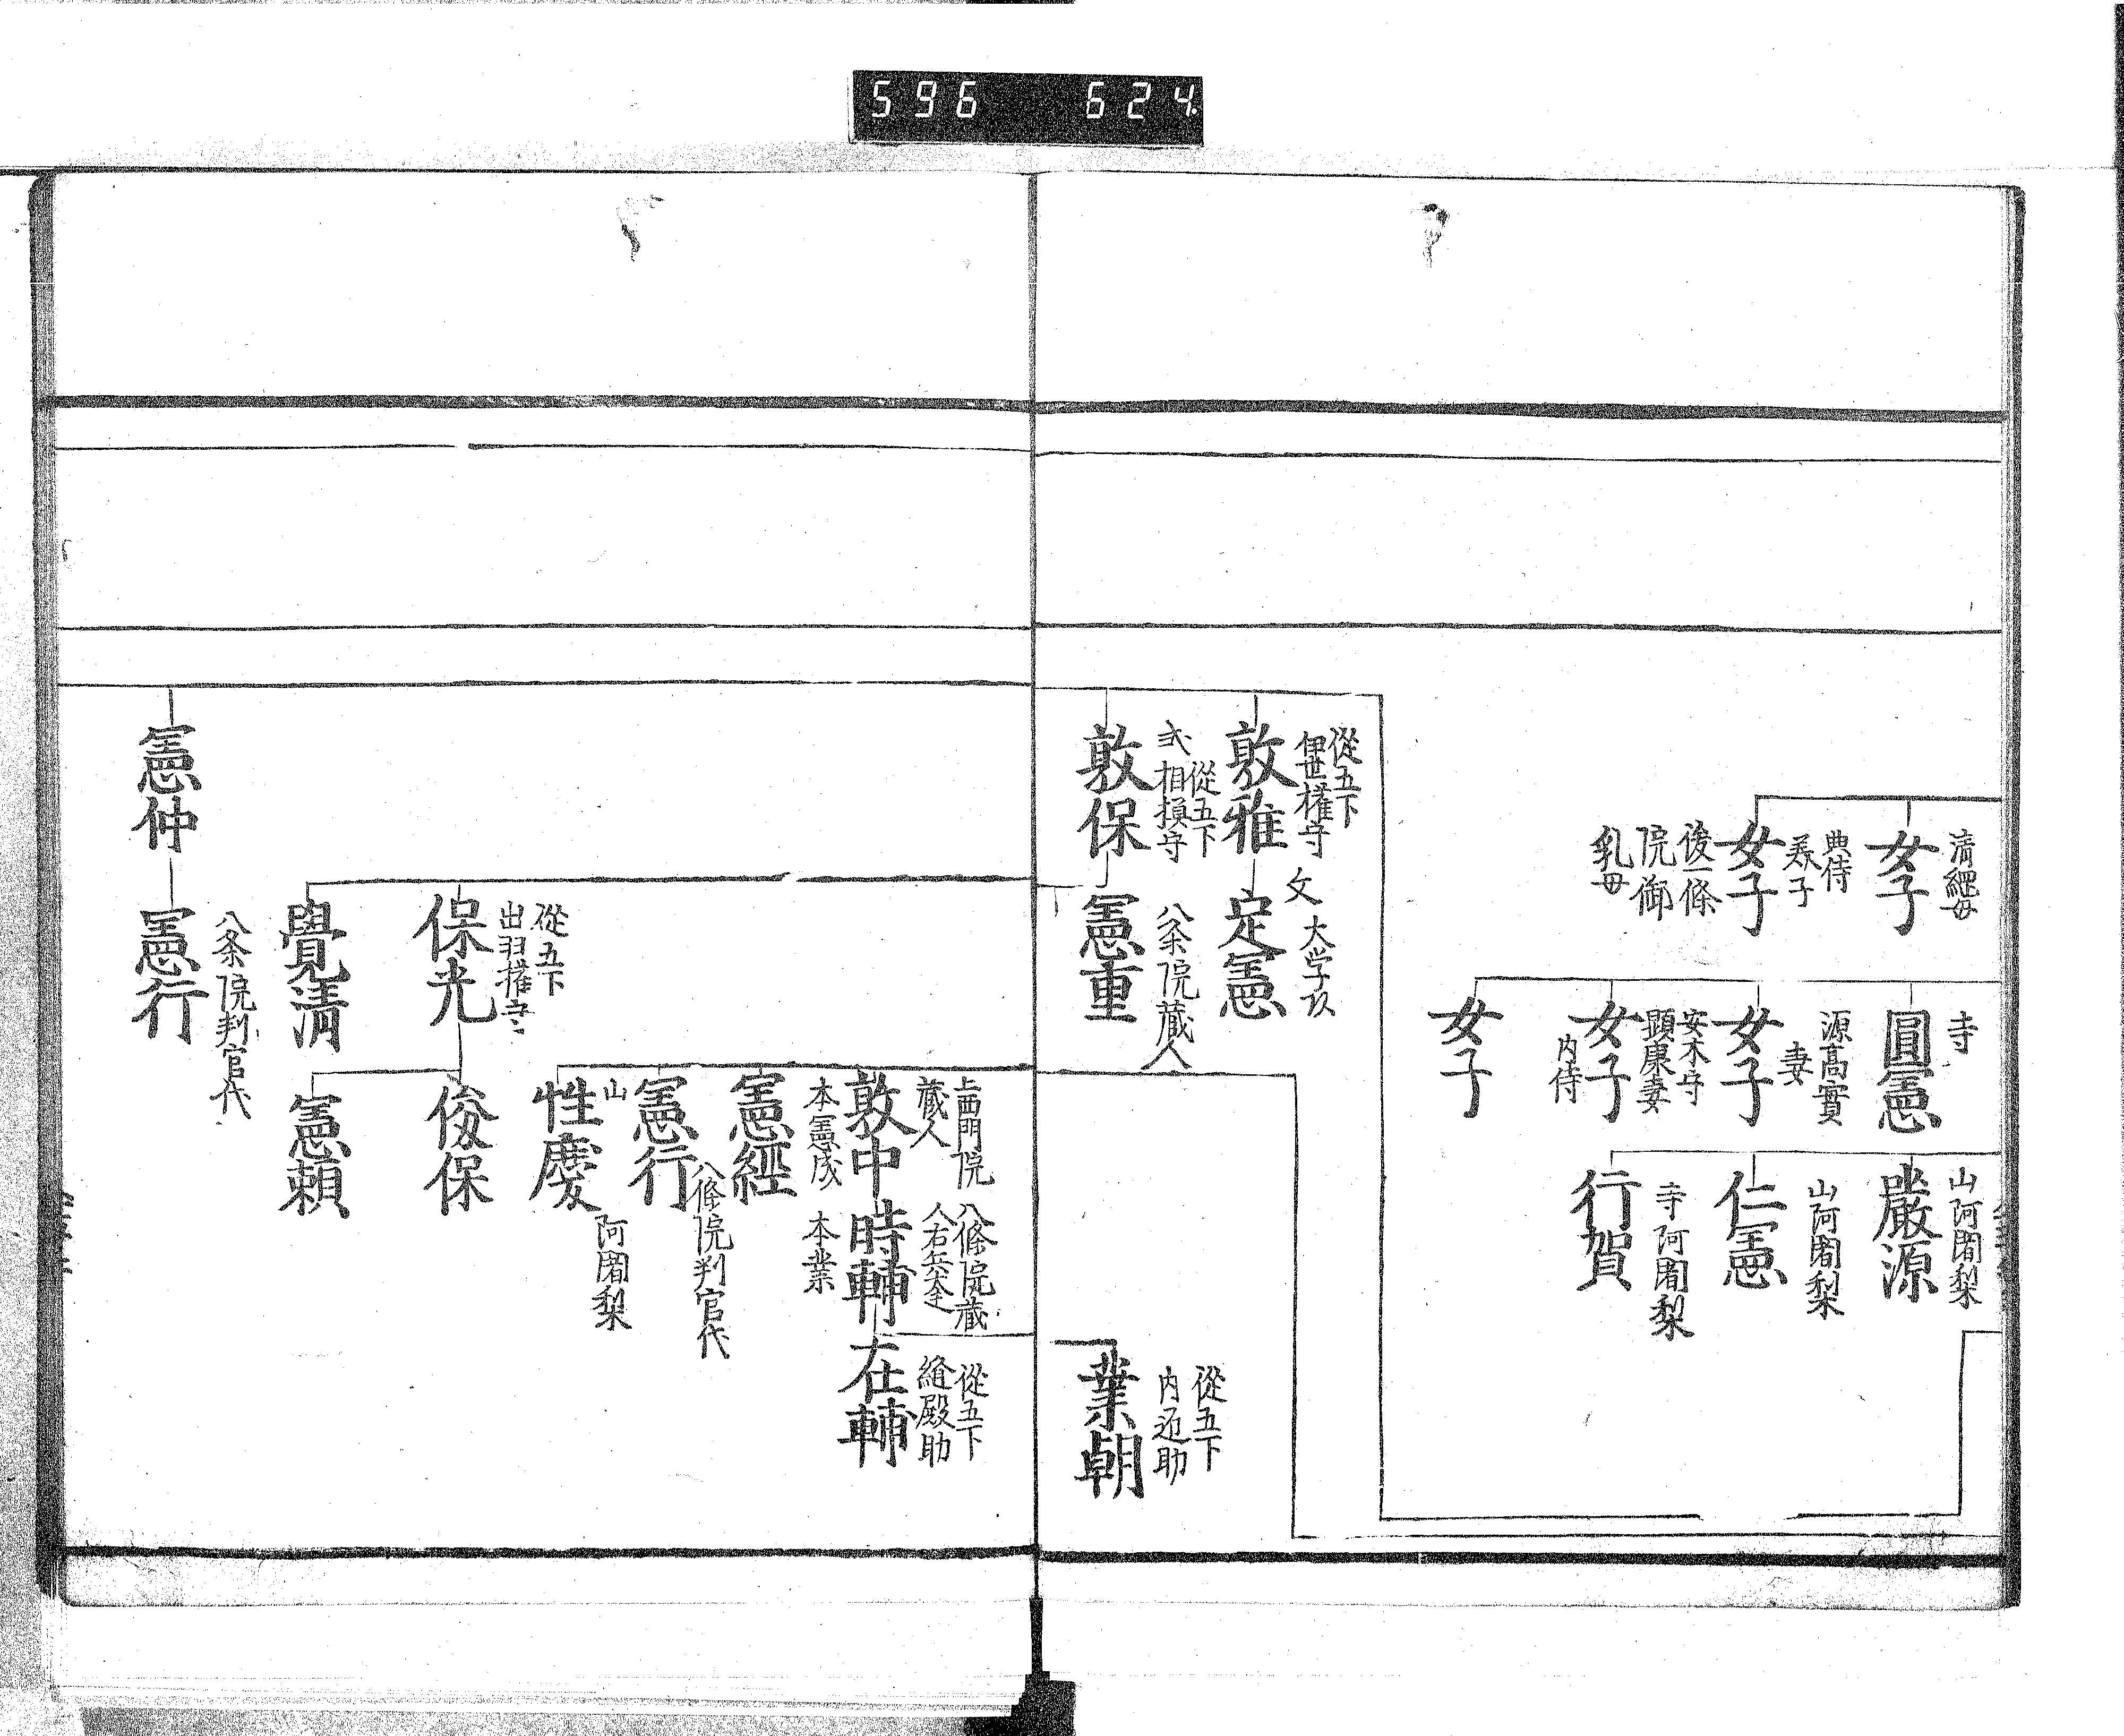 596 624
清經母
女子
典侍
美子
女子
後一條
院御
乳母
寺
圓憲
源高實
妻
女子
安木守
顕康妻
女子
内侍
女子
山阿闍梨
嚴源
山阿闍梨
仁憲
寺阿闍梨
行賀
從五下
伊世權守
敦雅
文
大学助
定憲
弍
從五下
相損守
敦保
八条院蔵人
憲重
從五下
内匠助
業朝
上西門院
蔵人
敦中
八條院蔵
人右兵大圭
時輔
從五下
縫殿助
在輔
本憲成
憲經
本業
憲行
八條院判官代
山
性慶
阿闍梨
從五下
出羽權守
保光
俊保
覺清
憲頼
憲仲
八条院判官代
憲行